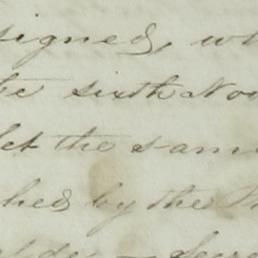 signed, wh
be sixth Nov
let the sam
hed by the